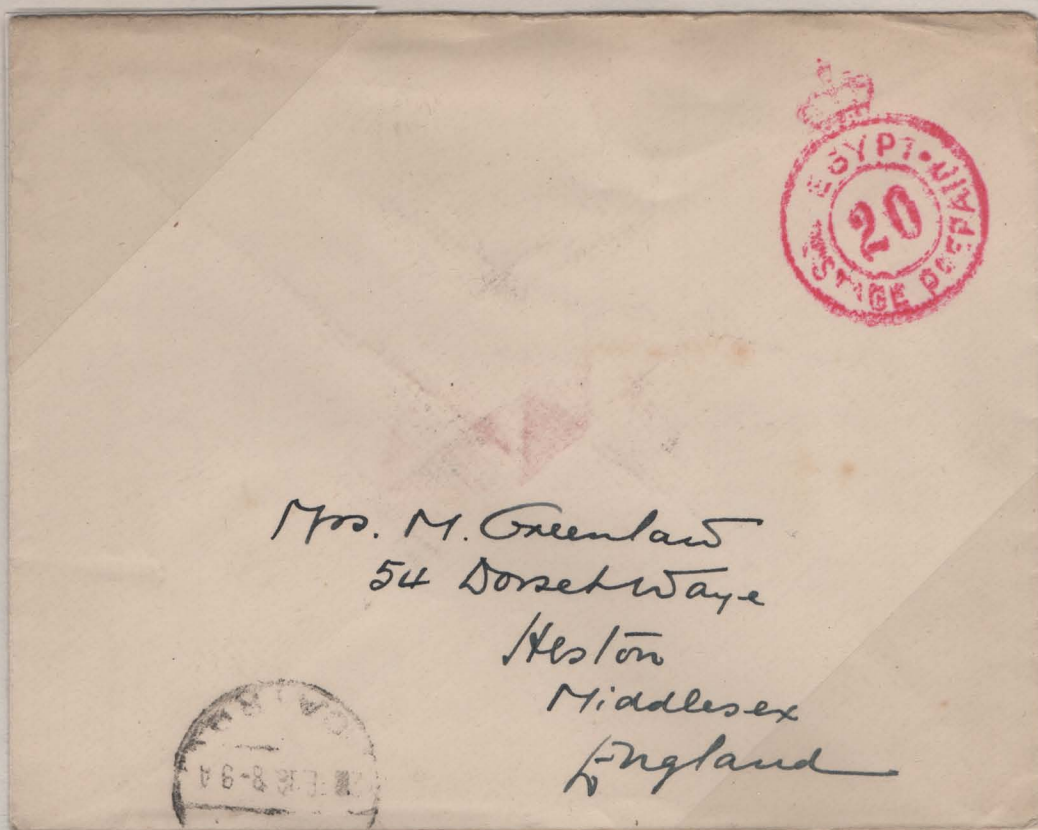 EGYPT • POSTAGE PREPAID
20
Mrs. M. Greenlaw
54 Dorset Waye
Heston
Middlesex
England
8-9 A